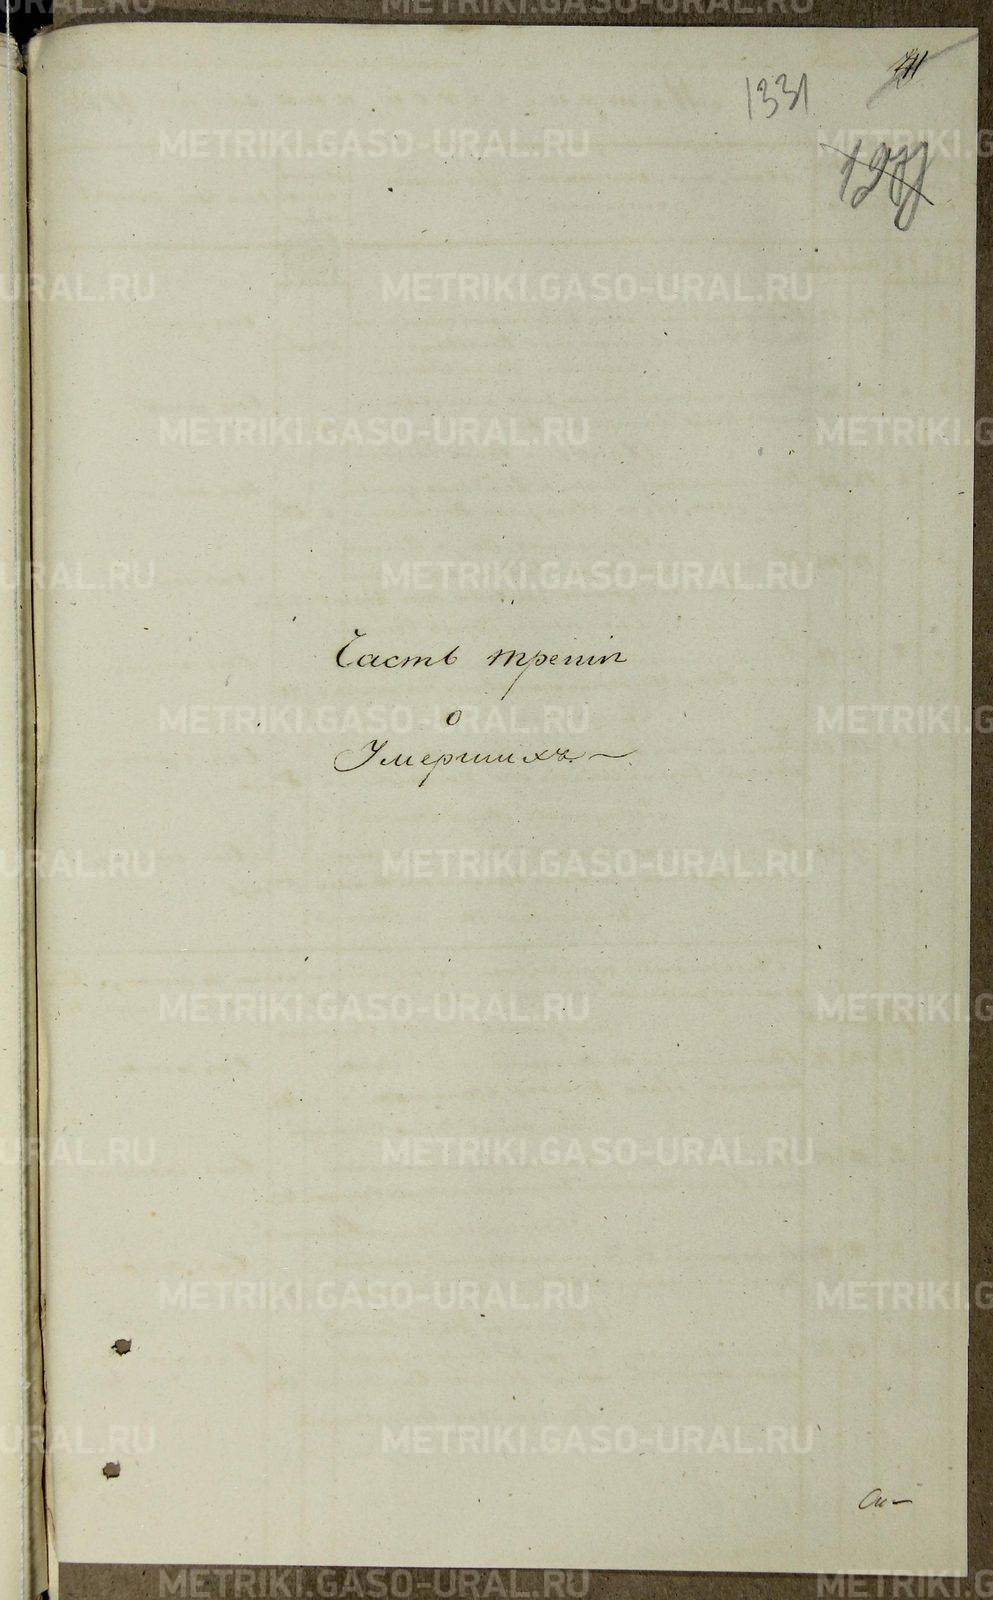 1331
Часть третія
о
Умершихъ
METRIKI.GASO-URAL.RU